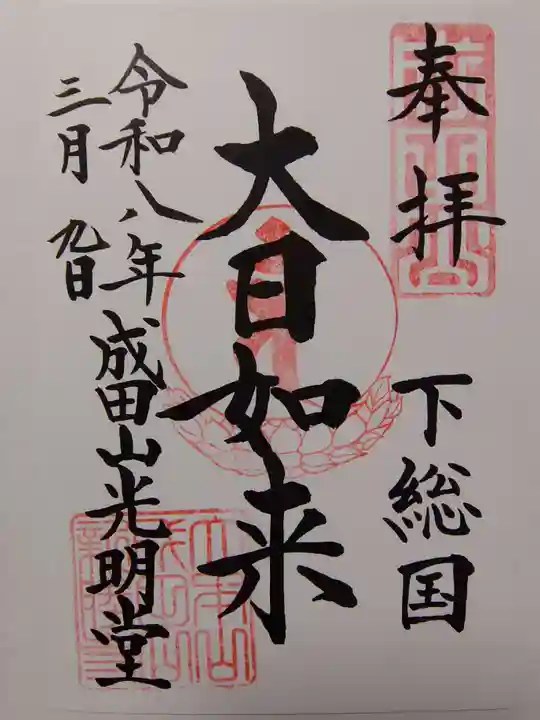 奉拝
下総国
大日如来
令和八年
成田山光明堂
三月九日